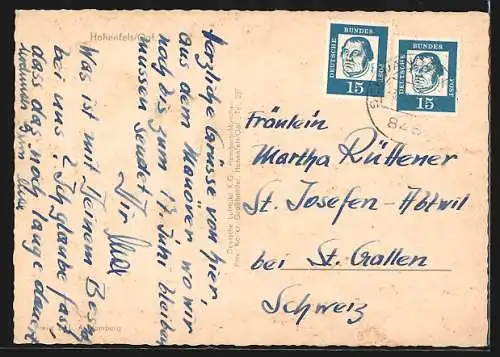 Hohenfels/Opf.
Herzliche Grüsse von hier,
aus dem Manöver wo wir
noch bis zum 17. Juni bleiben
müssen sendet
Dir Max
Was ist mit Deinem Besuch
bei uns? Ich glaube fast
dass das noch lange dauert
DEUTSCHE BUNDES POST
15
DEUTSCHE BUNDES POST
15
846
Fräulein
Martha Rüttener
St. Josefen-Abtwil
bei St. Gallen
Schweiz